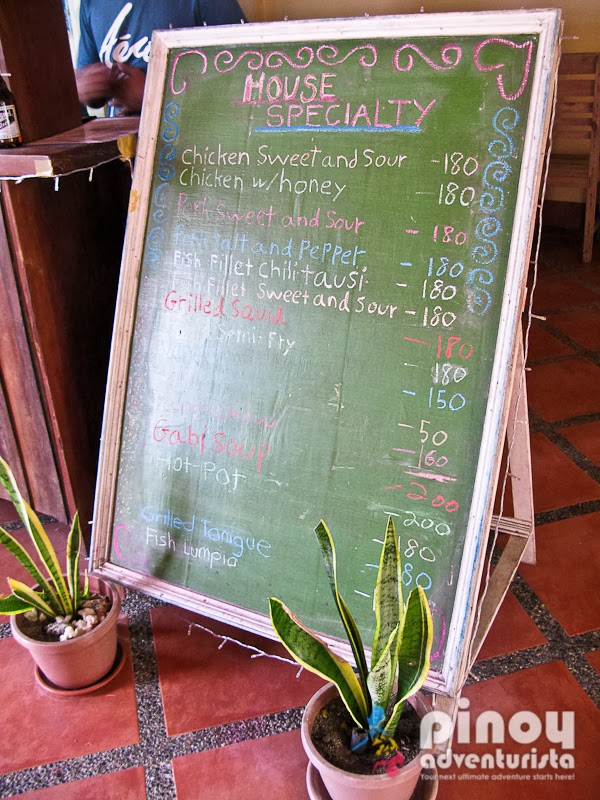 HOUSE
SPECIALTY
Chicken Sweet and Sour - 180
Chicken w/ honey - 180
Pork Sweet and Sour - 180
Salt and Pepper - 180
Fish Fillet Chili tausi - 180
Fish Fillet Sweet and Sour - 180
Grilled Squid - 180
Semi-Fry - 180
- 150
- 50
- 160
Gabi Soup - 200
Hot-Pot - 200
Grilled Tanigue
Fish Lumpia
pinoy
adventurista
Your next ultimate adventure starts here!